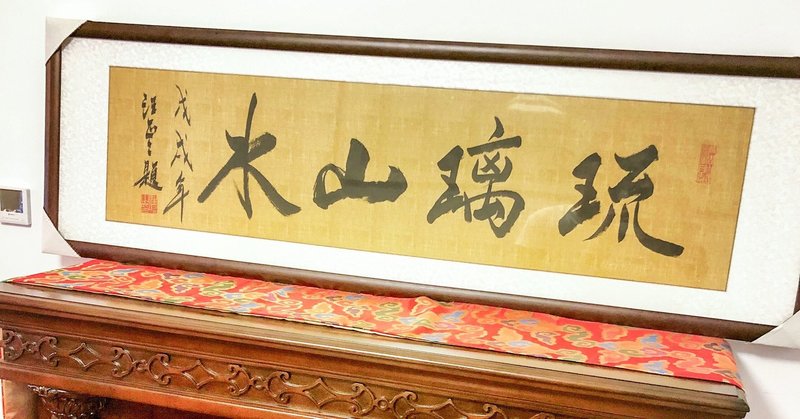 琉璃山水
戊戌年
題